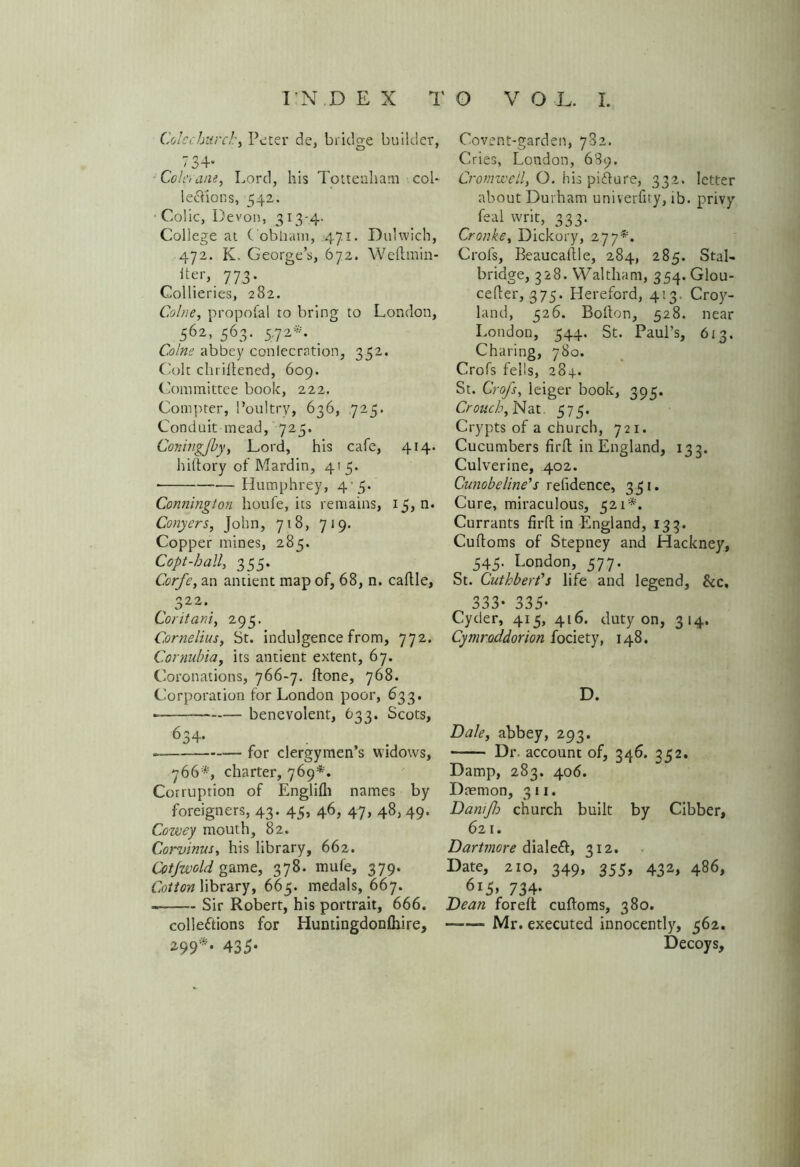 INDEX TO VOL. I.
Colechurch, Peter de, bridge builder,
734.
Colerane, Lord, his Tottenham col-
lećtions, 542.
Colic, Devon, 313-4.
College at Cobham, 471. Dulwich,
472. K. George's, 672. Weſtmin-
ſter, 773.
Collieries, 282.
Colne, propoſal to bring to London,
562, 563. 572*.
Colne abbey conſecration, 352.
Colt chriſtened, 609.
Committee book, 222.
Compter, Poultry, 636, 725.
Conduit mead, 725.
Coningſby, Lord, his caſe, 414.
hiſtory of Mardin, 415.
——— Humphrey, 4'5.
Connington houſe, its remains, 15, n.
Conyers, John, 718, 719.
Copper mines, 285.
Copt-hall, 355.
Corfe, an antient map of, 68, n. caſtle,
322.
Coritani, 295.
Cornelius, St. indulgence from, 772.
Cornubia, its antient extent, 67.
Coronations, 766-7. ſtone, 768.
Corporation for London poor, 633.
——— benevolent, 633. Scots,
634.
——— for clergymen's widows,
766*, charter, 769*.
Corruption of Engliſh names by
foreigners, 43. 45, 46, 47, 48, 49.
Cowey mouth, 82.
Corvinus, his library, 662.
Cotſwold game, 378. muſe, 379.
Cotton library, 665. medals, 667.
—— Sir Robert, his portrait, 666.
collećtions for Huntingdonſhire,
299*. 435.
Covent-garden, 782.
Cries, London, 689.
Cromwell, O. his pićture, 332. letter
about Durham univerſity, ib. privy
ſeal writ, 333.
Cronke, Dickory, 277*.
Croſs, Beaucaſtle, 284, 285. Stal-
bridge, 328. Waltham, 354. Glou-
ceſter, 375. Hereford, 413. Croy-
land, 526. Boſton, 528. near
London, 544. St. Paul's, 613.
Charing, 780.
Croſs fells, 284.
St. Croſs, leiger book, 395.
Crouch, Nat. 575.
Crypts of a church, 721.
Cucumbers firſt in England, 133.
Culverine, 402.
Cunobeline's reſidence, 351.
Cure, miraculous, 521*.
Currants firſt in England, 133.
Cuſtoms of Stepney and Hackney,
545. London, 577.
St. Cuthbert's life and legend, &c.
333. 335.
Cyder, 415, 416. duty on, 314.
Cymroddorion ſociety, 148.
D.
Dale, abbey, 293.
—— Dr. account of, 346. 352.
Damp, 283. 406.
Dæmon, 311.
Daniſh church built by Cibber,
621.
Dartmore dialećt, 312.
Date, 210, 349, 355, 432, 486,
615, 734.
Dean foreſt cuſtoms, 380.
—— Mr. executed innocently, 562.
Decoys,